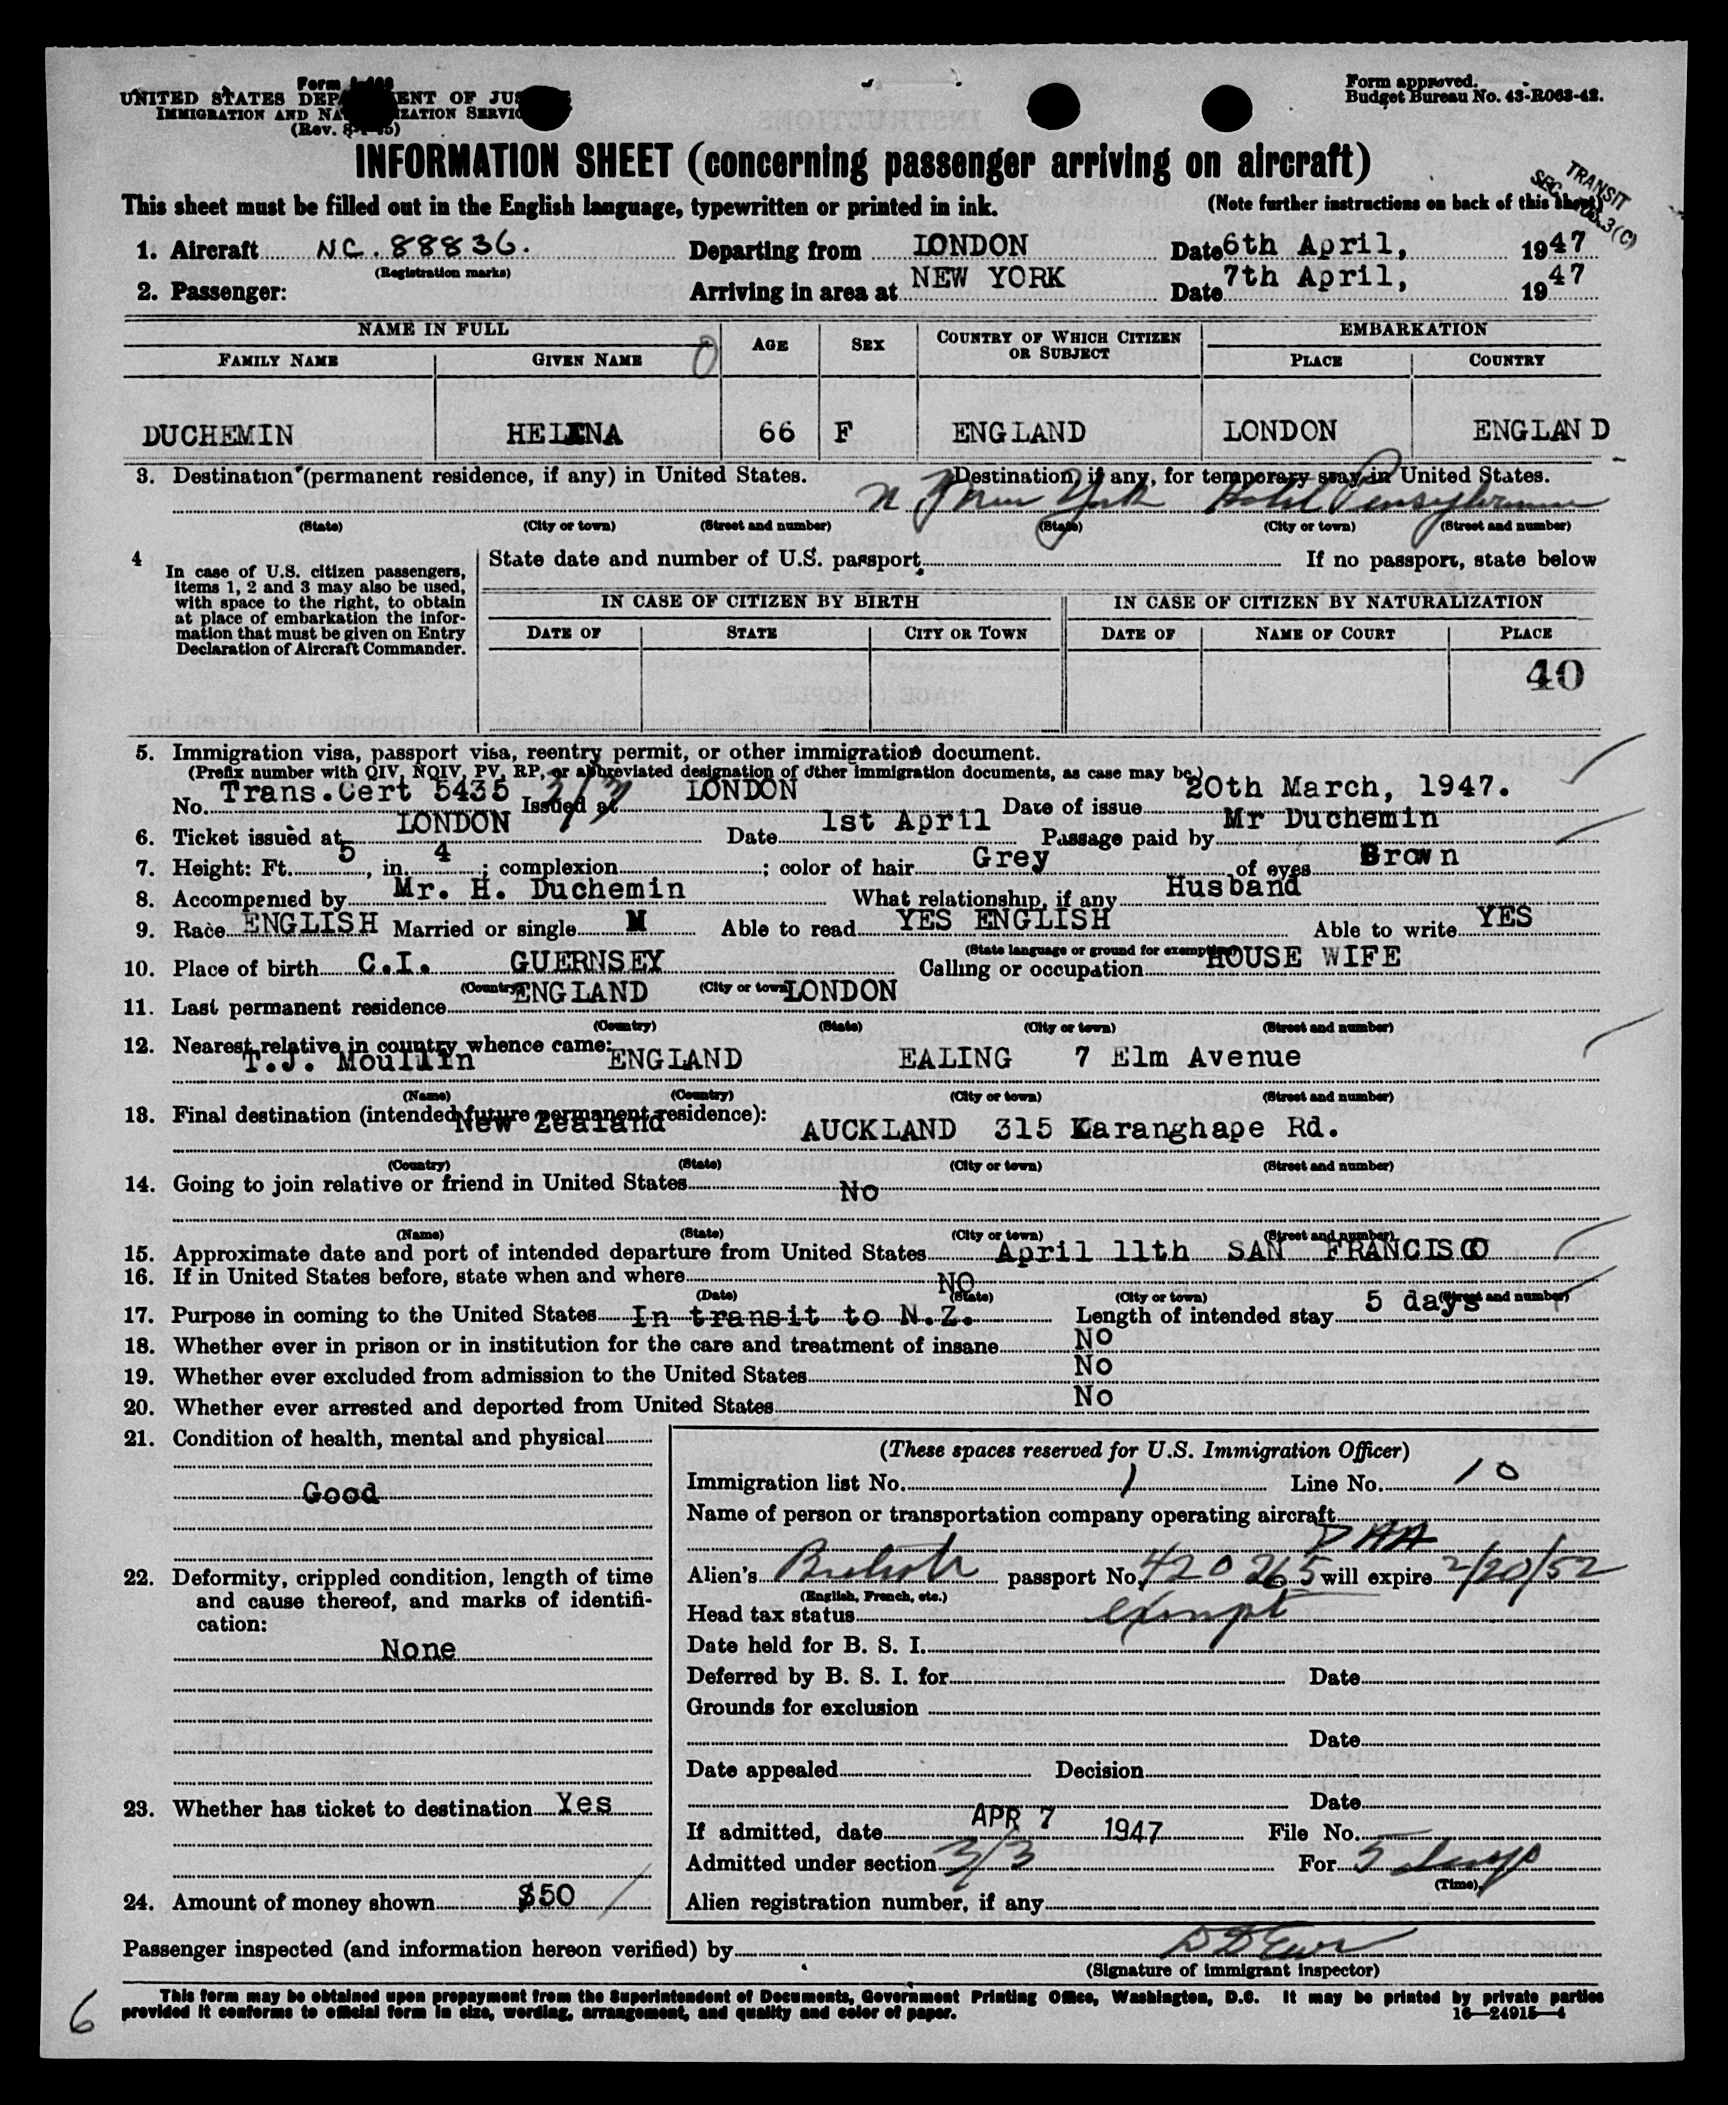 Form
UNITED STATES DEP ENT OF JUS
IMMIGRATION AND NA IZATION SERVIC
(Rev.
Form approved.
Budget Bureau No. 43-R063-42.
INFORMATION SHEET (concerning passenger arriving on aircraft)
TRANSIT
SEC. 3(C)
This sheet must be filled out in the English language, typewritten or printed in ink. (Note further instructions on back of this sheet)
1. Aircraft NC. 88836. Departing from LONDON Date 6th April, 1947
(Registration marks)
2. Passenger: Arriving in area at NEW YORK Date 7th April, 1947
NAME IN FULL AGE SEX COUNTRY OF WHICH CITIZEN OR SUBJECT EMBARKATION
FAMILY NAME GIVEN NAME 0 PLACE COUNTRY
DUCHEMIN HELENA 66 F ENGLAND LONDON ENGLAND
3. Destination (permanent residence, if any) in United States. Destination, if any, for temporary stay in United States.
N Y New York Hotel Pensylvania
(State) (City or town) (Street and number) (State) (City or town) (Street and number)
4 In case of U.S. citizen passengers, items 1, 2 and 3 may also be used, with space to the right, to obtain at place of embarkation the information that must be given on Entry Declaration of Aircraft Commander.
State date and number of U.S. passport If no passport, state below
IN CASE OF CITIZEN BY BIRTH IN CASE OF CITIZEN BY NATURALIZATION
DATE OF STATE CITY OR TOWN DATE OF NAME OF COURT PLACE
40
5. Immigration visa, passport visa, reentry permit, or other immigration document.
(Prefix number with QIV, NQIV, PV, RP, or abbreviated designation of other immigration documents, as case may be.)
No. Trans.Cert 5435 3/3 Issued at LONDON Date of issue 20th March, 1947.
6. Ticket issued at LONDON Date 1st April Passage paid by Mr Duchemin
7. Height: Ft. 5, in. 4; complexion ; color of hair Grey of eyes Brown
8. Accompenied by Mr. H. Duchemin What relationship, if any Husband
9. Race ENGLISH Married or single M Able to read YES ENGLISH Able to write YES
(State language or ground for exemption)
10. Place of birth C.I. GUERNSEY Calling or occupation HOUSE WIFE
(Country) (City or town)
11. Last permanent residence ENGLAND LONDON
(Country) (State) (City or town) (Street and number)
12. Nearest relative in country whence came:
T.J. Moullin ENGLAND EALING 7 Elm Avenue
(Name) (Country) (City or town) (Street and number)
13. Final destination (intended future permanent residence):
New Zealand AUCKLAND 315 Karanghape Rd.
(Country) (State) (City or town) (Street and number)
14. Going to join relative or friend in United States No
(Name) (State) (City or town) (Street and number)
15. Approximate date and port of intended departure from United States April 11th SAN FRANCISCO
16. If in United States before, state when and where NO
(Date) (State) (City or town) (Street and number)
17. Purpose in coming to the United States In transit to N.Z. Length of intended stay 5 days
18. Whether ever in prison or in institution for the care and treatment of insane No
19. Whether ever excluded from admission to the United States No
20. Whether ever arrested and deported from United States No
21. Condition of health, mental and physical
Good
22. Deformity, crippled condition, length of time
and cause thereof, and marks of identifi-
cation:
None
23. Whether has ticket to destination Yes
24. Amount of money shown $50
(These spaces reserved for U.S. Immigration Officer)
Immigration list No. 1 Line No. 10
Name of person or transportation company operating aircraft
PAA
Alien's British passport No. 420265 will expire 2/20/52
(English, French, etc.)
Head tax status exempt
Date held for B. S. I.
Deferred by B. S. I. for Date
Grounds for exclusion
Date
Date appealed Decision
Date
If admitted, date APR 7 1947 File No.
Admitted under section 3/3 For 5 days
(Time)
Alien registration number, if any
Passenger inspected (and information hereon verified) by
(Signature of immigrant inspector)
6
This form may be obtained upon prepayment from the Superintendent of Documents, Government Printing Office, Washington, D.C. It may be printed by private parties
provided it conforms to official form in size, wording, arrangement, and quality and color of paper. 16—24915-4